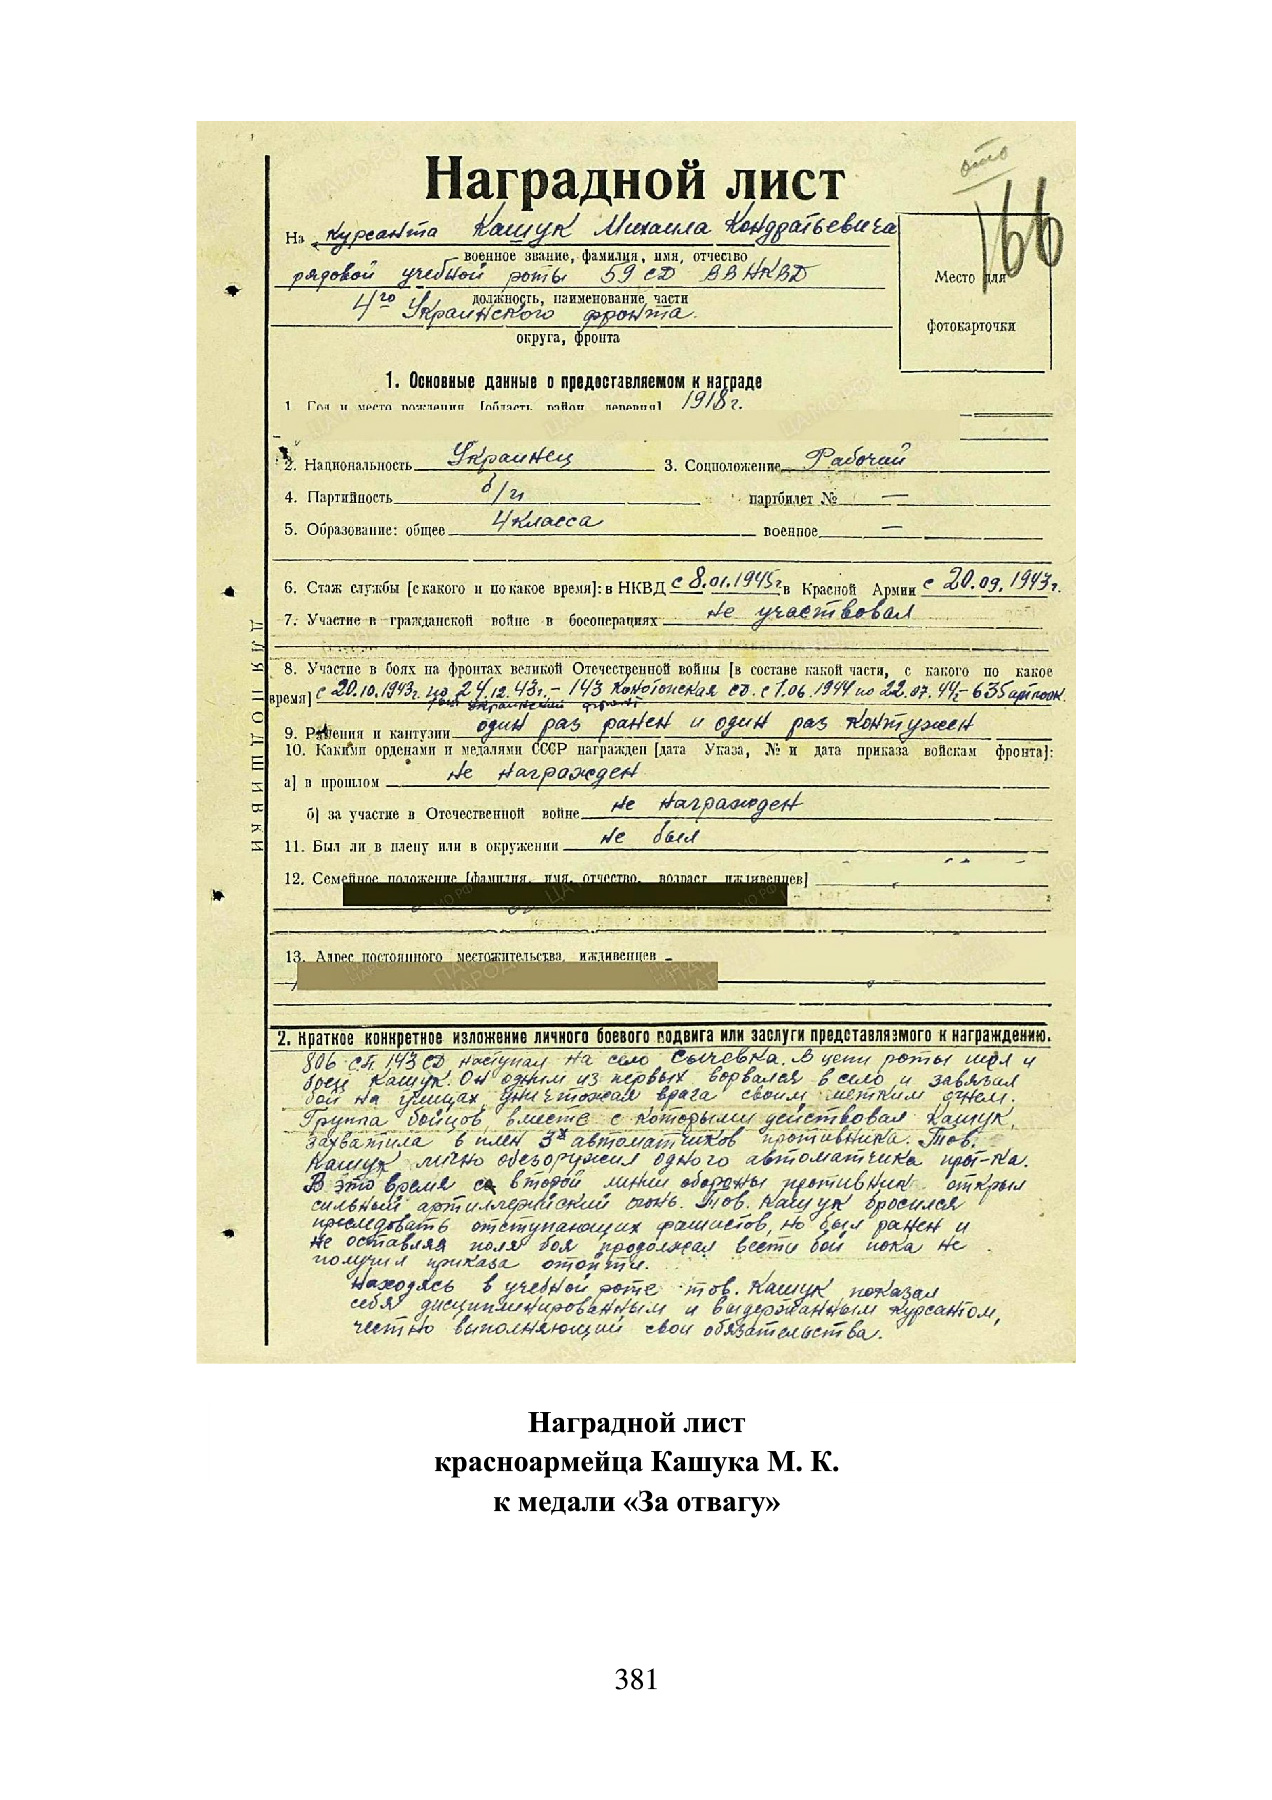 Наградной лист
ото
166
На курсанта Кашук Михаила Кондратьевича
военное звание, фамилия, имя, отчество
рядовой учебной роты 59 СД ВВ НКВД
должность, наименование части
4го Украинского фронта.
округа, фронта
Место для
фотокарточки
1. Основные данные о предоставляемом к награде
1. Год и место рождения [область, район, деревня] 1918г.
2. Национальность Украинец 3. Соцположение Рабочий
4. Партийность б/п партбилет № —
5. Образование: общее 4 класса военное —
6. Стаж службы [с какого и по какое время]: в НКВД с 8.01.1945г в Красной Армии с 20.09.1943г.
7. Участие в гражданской войне в босоперациях не участвовал
8. Участие в боях на фронтах великой Отечественной войны [в составе какой части, с какого по какое
время] с 20.10.1943г. по 24.12.43г. – 143 Конотопская сд. с 1.06.1944 по 22.07.44,– 635 артполк.
Украинский фронт
9. Ранения и кантузии один раз ранен и один раз контужен
10. Какими орденами и медалями СССР награжден [дата Указа, № и дата приказа войскам фронта]:
а] в прошлом не награжден
б) за участие в Отечественной войне не награжден
11. Был ли в плену или в окружении не был
12. Семейное положение [фамилия, имя, отчество, возраст иждивенцев]
13. Адрес постоянного местожительства, иждивенцев –
ДЛЯ ПОДШИВКИ
2. Краткое конкретное изложение личного боевого подвига или заслуги представляемого к награждению.
806 сп. 143 СД наступал на село Сычевка. В цепи роты шел и
боец Кашук. Он одним из первых ворвался в село и завязал
бой на улицах, уничтожая врага своим метким огнем.
Группа бойцов, вместе с которыми действовал Кашук,
захватила в плен 3х автоматчиков противника. Тов.
Кашук лично обезоружил одного автоматчика прот-ка.
В это время со второй линии обороны противник открыл
сильный артиллерийский огонь. Тов. Кашук бросился
преследовать отступающих фашистов, но был ранен и
не оставляя поля боя продолжал вести бой пока не
получил приказа отойти.
Находясь в учебной роте тов. Кашук показал
себя дисциплинированным и выдержанным курсантом,
честно выполняющий свои обязательства.
Наградной лист
красноармейца Кашука М. К.
к медали «За отвагу»
381